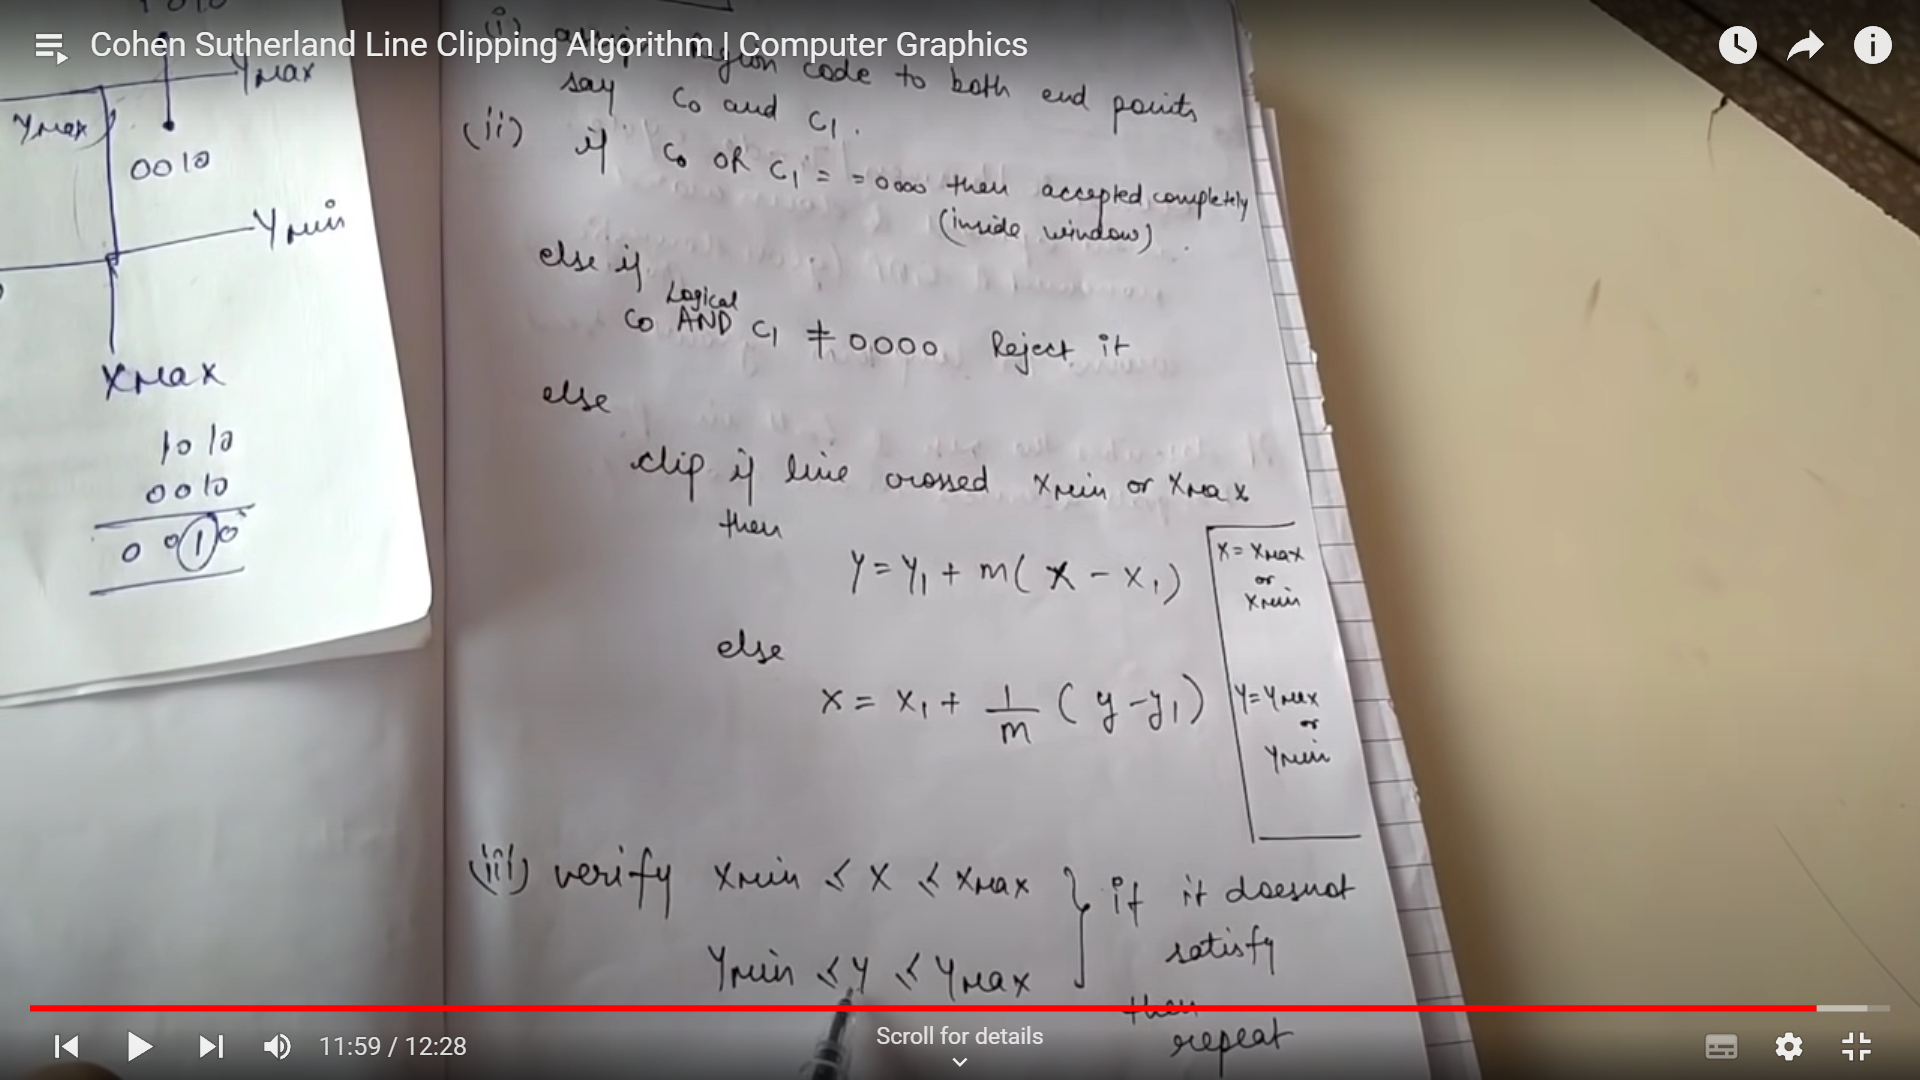 Cohen Sutherland Line Clipping Algorithm | Computer Graphics
1010
Ymax
Ymax
0010
Ymin
Xmax
1010
0010
0010
(i) assign Region code to both end points
say C0 and C1.
(ii) if C0 OR C1 = = 0000 then accepted completely
(inside window).
else if
Logical
C0 AND C1 ≠ 0000 Reject it
else
clip if line crossed Xmin or Xmax
then
Y = Y1 + m(X - X1)
X = Xmax
or
Xmin
else
X = X1 + 1/m (y - y1)
Y = Ymax
or
Ymin
(iii) verify Xmin ≤ X ≤ Xmax
Ymin ≤ Y ≤ Ymax
if it doesnot
satisfy
then
repeat
11:59 / 12:28
Scroll for details